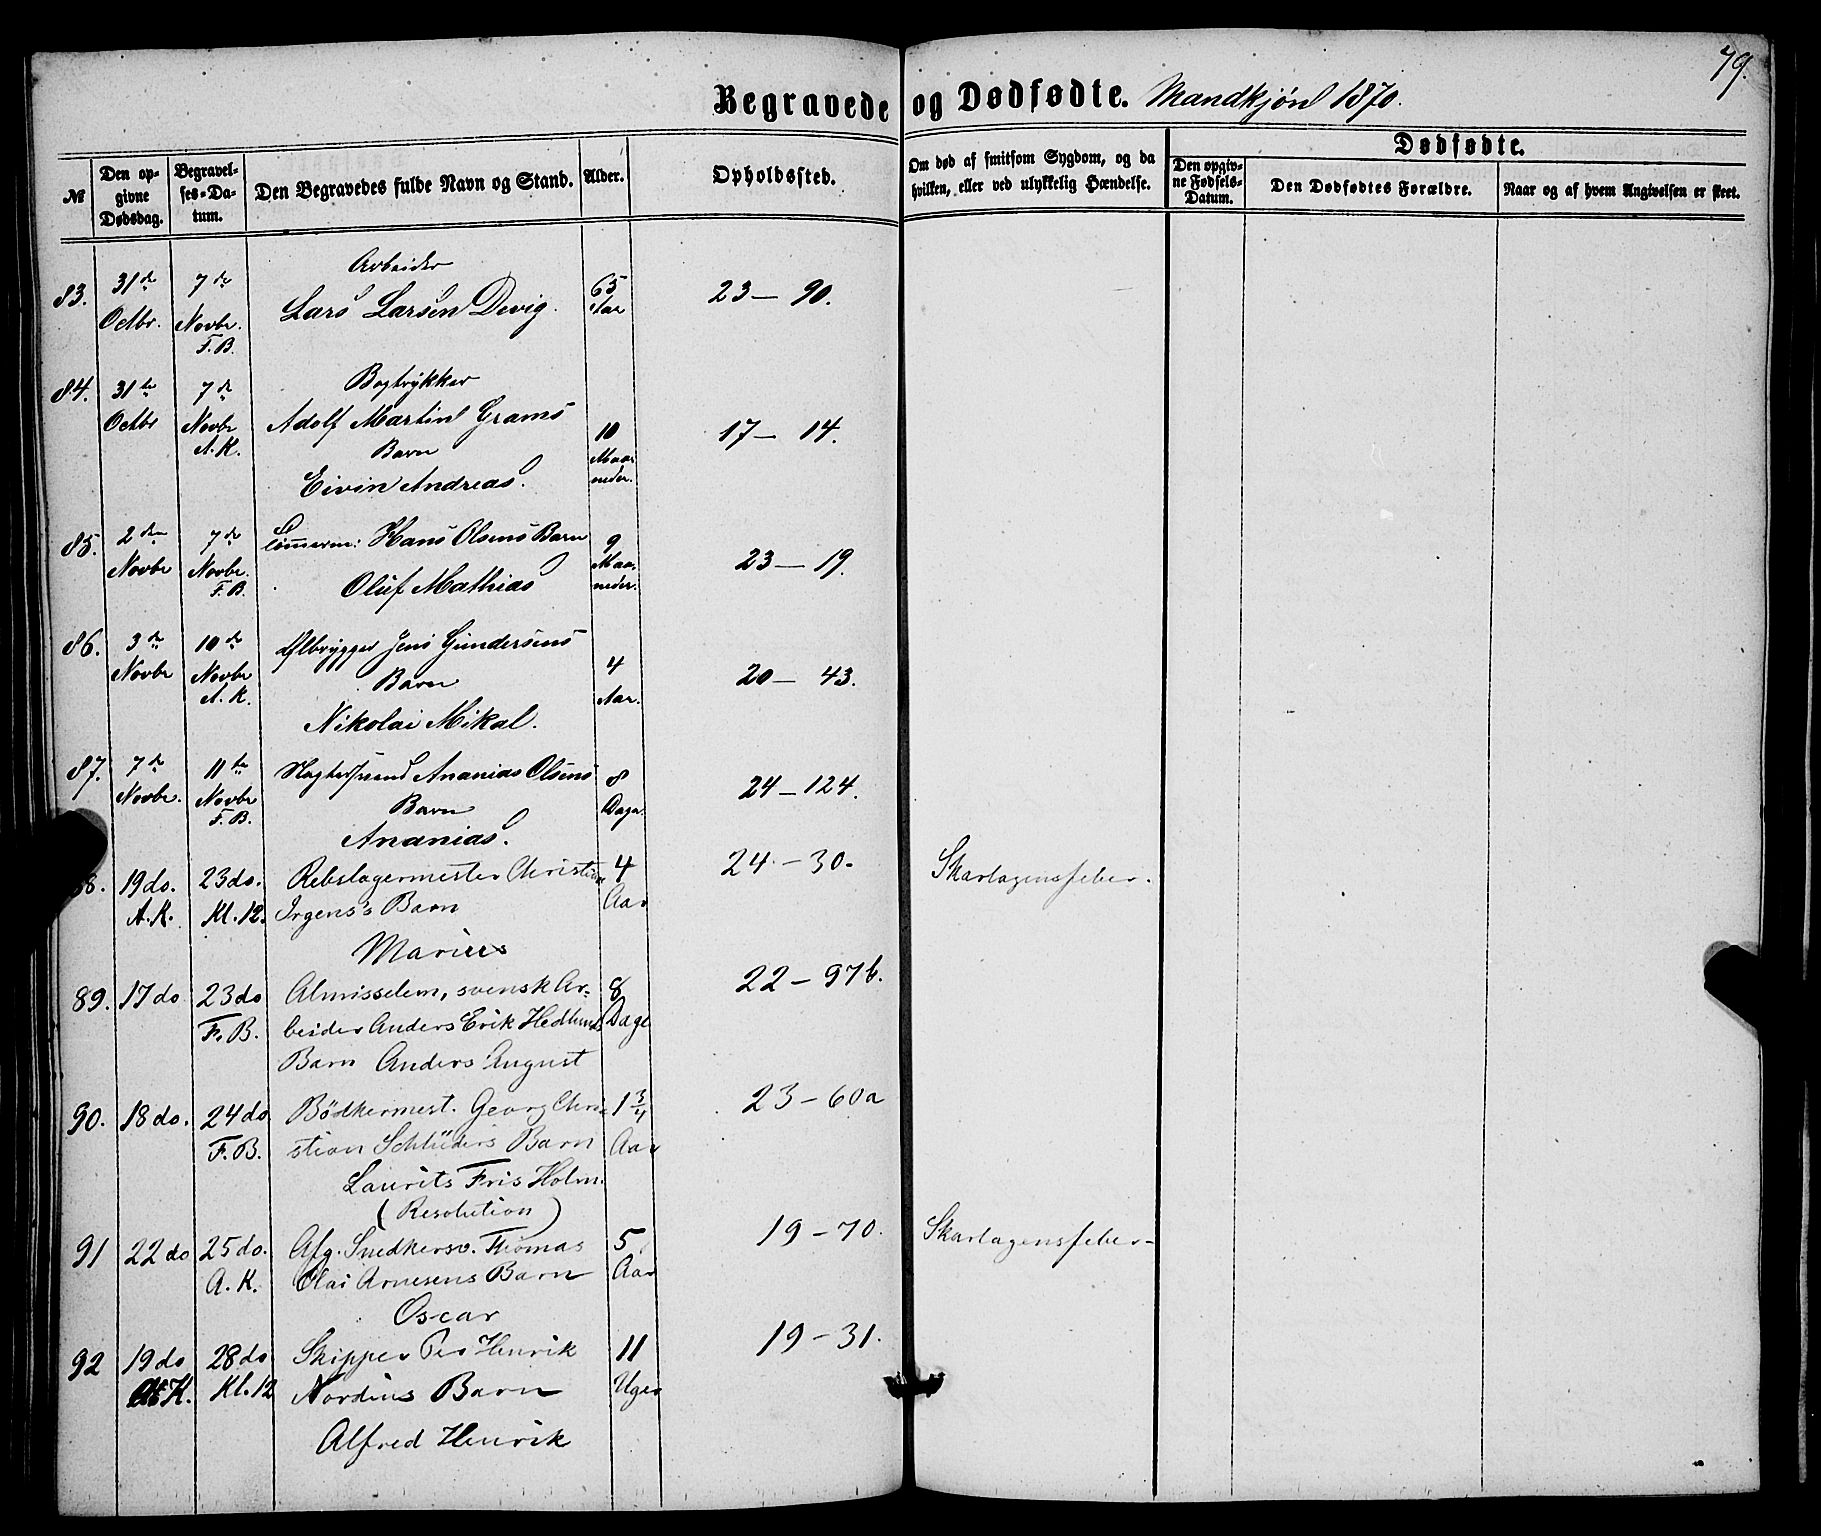 79.
Begravede og Dødfødte. Mandkjøn 1870.
№ Den opgivne Dødsdag. Begravelses-Datum. Den Begravedes fulde Navn og Stand. Alder. Opholdssted. Om død af smitsom Sygdom, og da hvilken, eller ved ulykkelig Hændelse. Dødfødte. Den opgivne Fødsels-Datum. Den Dødfødtes Forældre. Naar og af hvem Angivelsen er skeet.
Arbeider
83. 31te 7de 65 23 — 90.
Octbr. Novbr. Lars Larsen Devig. Aar
F. B.
84. 31te 7de Bogtrykker
Octbr Novbr Adolf Martin Grams 10 17 — 14.
A. K. Barn Maa-
Eivin Andreas. neder.
85. 2den 7de Tømmerm: Hans Olsens Barn 9 23 — 19.
Novbr Novbr. Maa-
F. B. Oluf Mathias neder.
86. 3de 10de Ølbrygger Jens Gundersens 4 20 — 43.
Novbr Novbr Barn
A. K. Nikolai Mikal. Aar.
87. 7de 11te Ananias Olsens 8 24 — 124.
Novbr. Novbr Barn Dage.
F. B. Ananias.
88. 19 do. 23 do. Rebslagermester Christian 4 24. — 30. Skarlagensfeber.
A. K. Kl. 12. Irgens's Barn Aar
Marius
89. 17 do 23 do Almisselem, svensk Ar- 8 22 — 97 b.
F. B. beider Anders Erik Hedlunds Dage
Barn Anders August
90. 18 do. 24 do Bödkermest. Georg Chri- 1 3/4 23 — 60 a
F. B. stian Schlüders Barn Aar
Laurits Fris Holm.
(Resolution)
91 22 do 25 do. Afg. Snedkersv. Thomas 5 19 — 70. Skarlagensfeber —
A. K. Olai Arnesens Barn Aar
Oscar
92 19 do 28 do Skipper Per Henrik 11 19 — 31.
K. Kl. 12 Nordins Barn Uger
Alfred Henrik